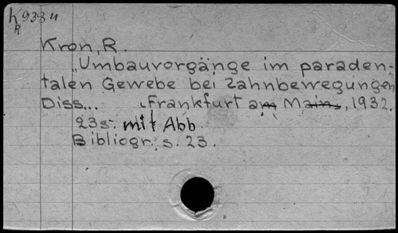 K933u
R
Kron, R.
„Umbauvorgänge im paraden-
talen Gewebe bei Zahnbewegungen
Diss... Frankfurt am Main, 1932.
23s. mit Abb.
Bibliogr., s. 23.